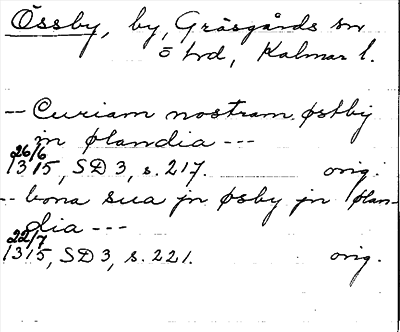 Össby, by, Gräsgårds sn
ö hd, Kalmar l.
-- Curiam nostram østby
in ølandia ---
26/6
1315, SD 3, s. 217. orig.
-- bona sua jn øsby jn ølan-
dia ---
22/7
1315, SD 3, s. 221. orig.